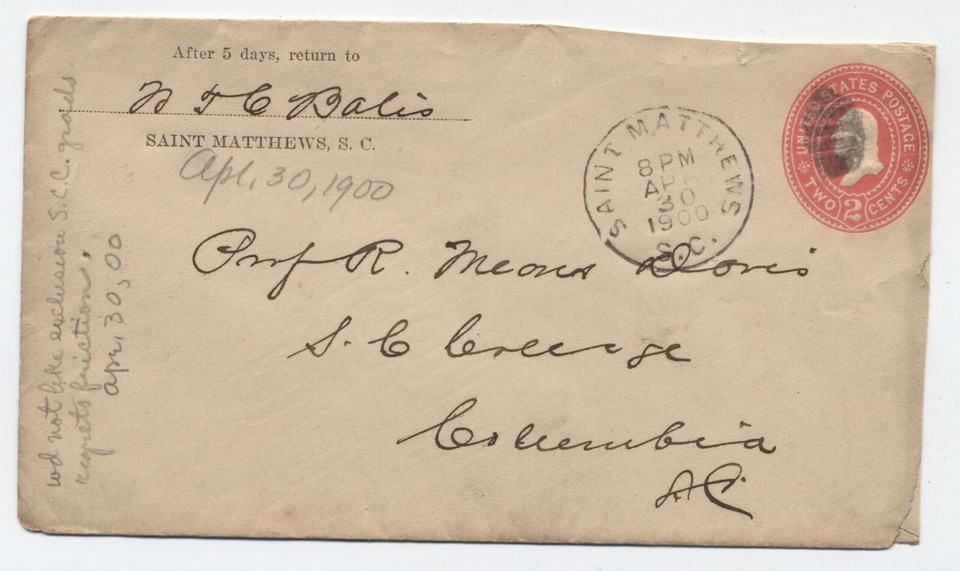 After 5 days, return to
W T C Balis
SAINT MATTHEWS, S. C.
Apl, 30, 1900
SAINT MATTHEWS
8 PM
APR
30
1900
S.C.
UNITED STATES POSTAGE
TWO 2 CENTS
Prof R. Means Davis
S. C College
Columbia
S.C.
wd not like exclusion S.C.C. grads.
regrets friction.
apr, 30, 00